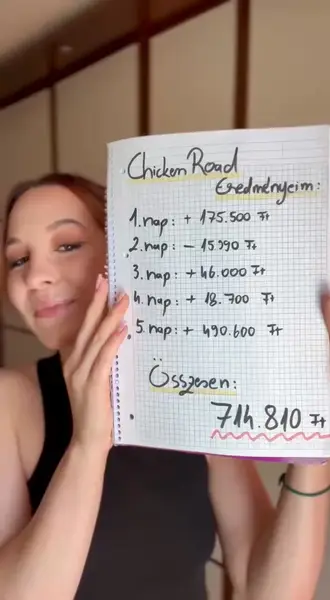 Chicken Road
Eredményeim:
1.nap: + 175.500 Ft
2.nap: - 15.990 Ft
3.nap: +46.000 Ft
4.nap: + 18.700 Ft
5.nap: + 490.600 Ft
Összesen:
714.810 Ft